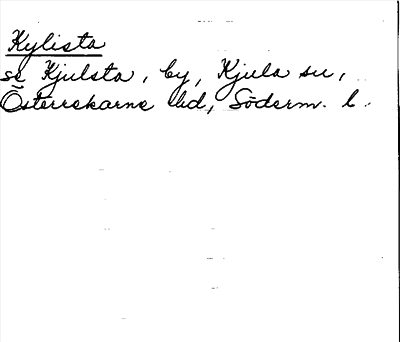 Kylista
se Kjulsta, by, Kjula sn,
Österrekarne hd, Söderm. l.